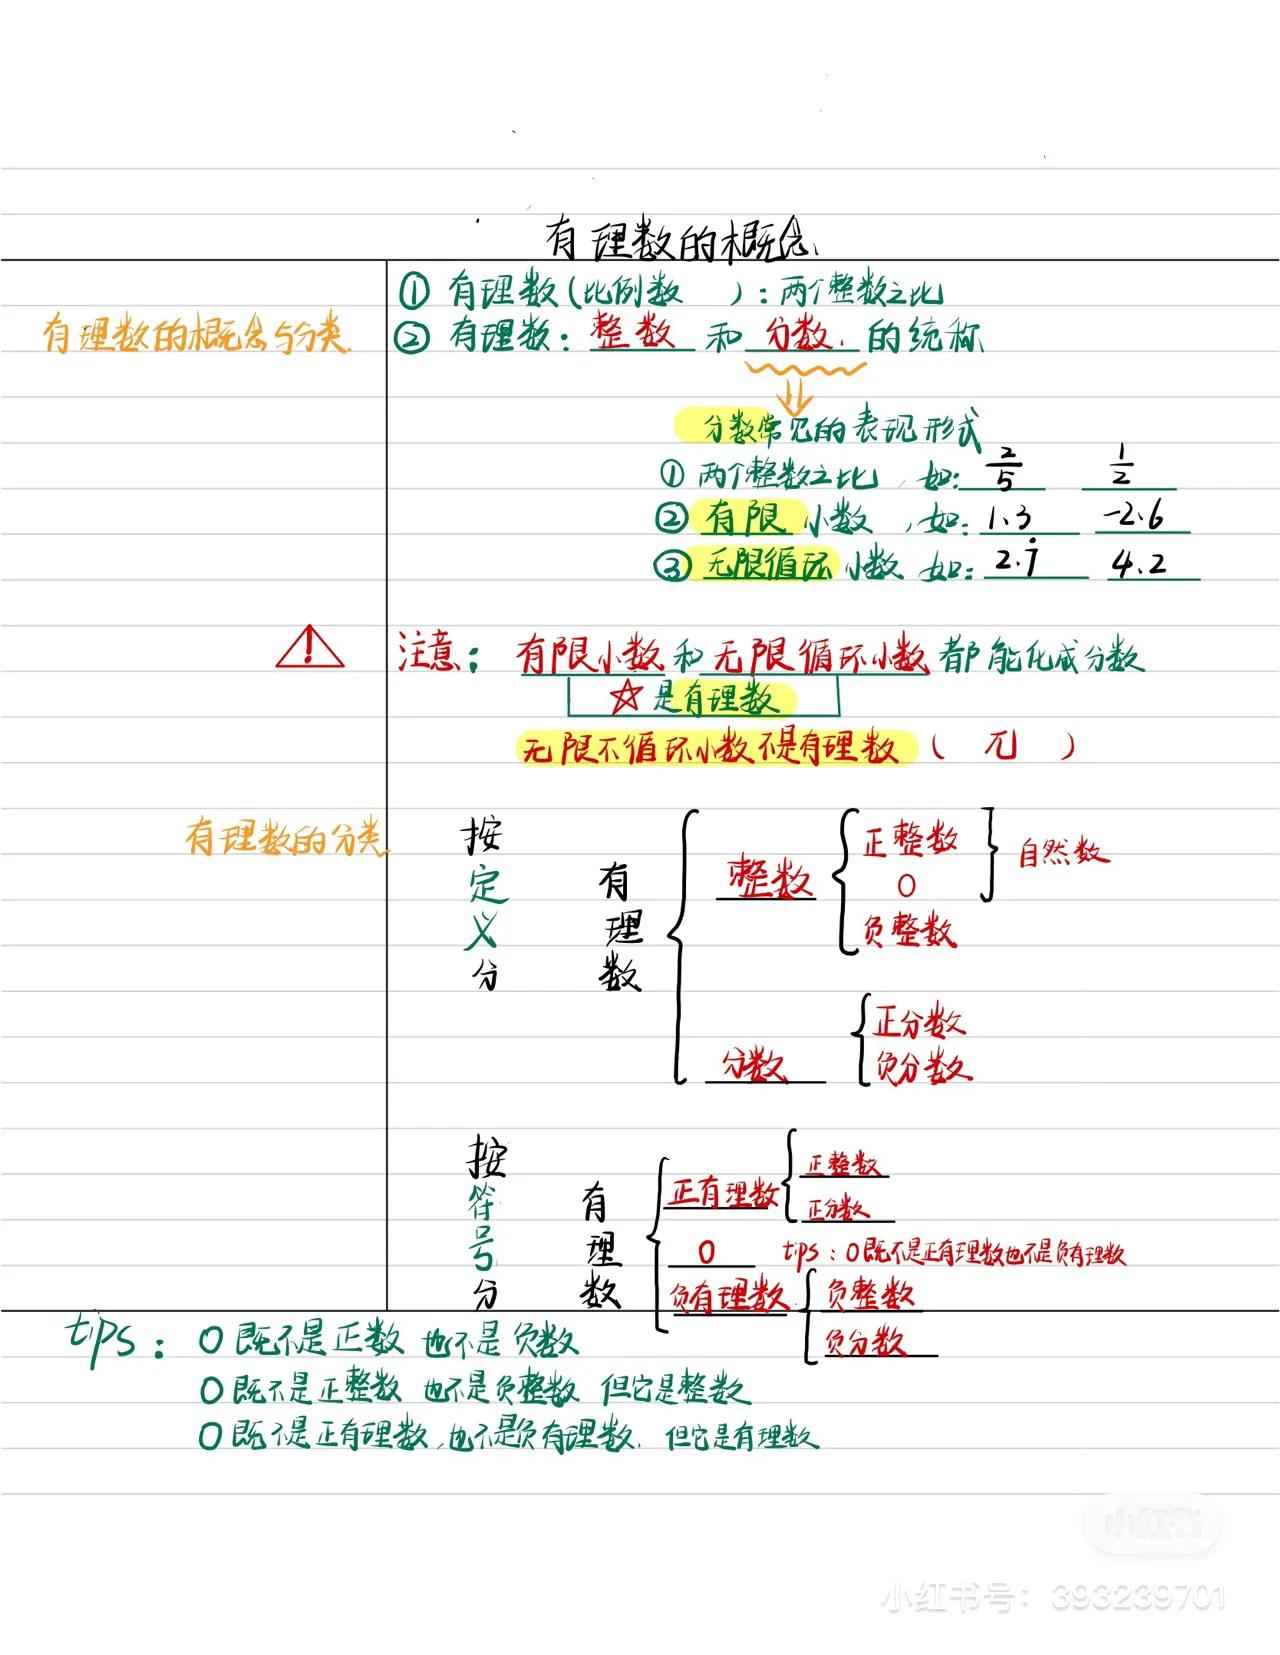 有理数的概念
有理数的概念与分类
① 有理数(比例数 ):两个整数之比
② 有理数: 整数 和 分数 的统称
分数常见的表现形式
① 两个整数之比,如: 2/5 1/2
② 有限小数,如: 1.3 -2.6
③ 无限循环小数 如: 2.i̇ 4.2
注意: 有限小数和无限循环小数都能化成分数
☆是有理数
无限不循环小数不是有理数( 兀 )
有理数的分类
按定义分
有理数
整数
正整数
0
负整数
自然数
分数
正分数
负分数
按符号分
有理数
正有理数
正整数
正分数
0 tips:0既不是正有理数也不是负有理数
负有理数
负整数
负分数
tips: 0既不是正数 也不是负数
0既不是正整数 也不是负整数 但它是整数
0既不是正有理数,也不是负有理数. 但它是有理数
小红书
小红书号:393239701